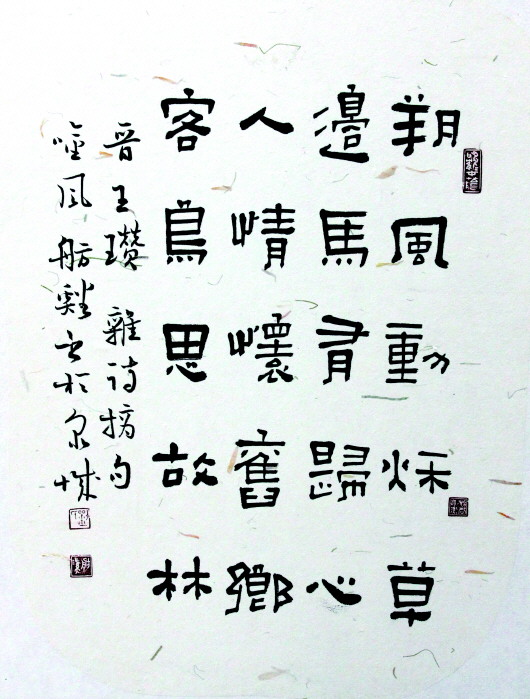 朔風動秌草
邊馬有歸心
人情懷舊鄉
客鳥思故林
晋王瓚 雜詩摘句
風舫 书於泉城